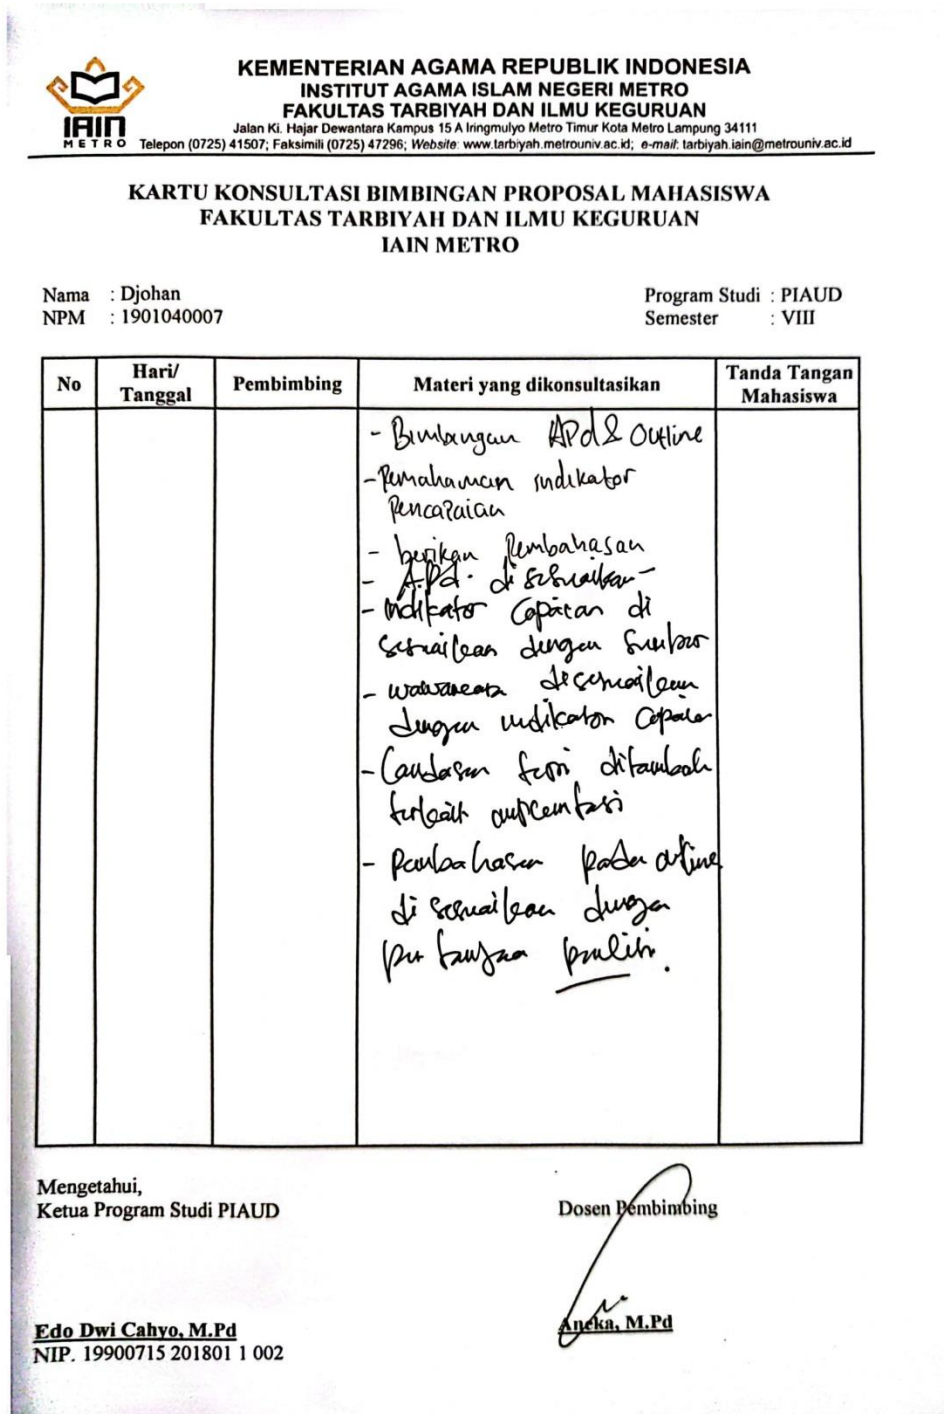 KEMENTERIAN AGAMA REPUBLIK INDONESIA
INSTITUT AGAMA ISLAM NEGERI METRO
FAKULTAS TARBIYAH DAN ILMU KEGURUAN
Jalan Ki. Hajar Dewantara Kampus 15 A Iringmulyo Metro Timur Kota Metro Lampung 34111
Telepon (0725) 41507; Faksimili (0725) 47296; Website: www.tarbiyah.metrouniv.ac.id; e-mail: tarbiyah.iain@metrouniv.ac.id
IAIN
METRO
KARTU KONSULTASI BIMBINGAN PROPOSAL MAHASISWA
FAKULTAS TARBIYAH DAN ILMU KEGURUAN
IAIN METRO
Nama : Djohan
NPM : 1901040007
Program Studi : PIAUD
Semester : VIII
No
Hari/
Tanggal
Pembimbing
Materi yang dikonsultasikan
Tanda Tangan
Mahasiswa
- Bimbingan APd & Outline
- Pemahaman indikator
Pencapaian
- berikan Pembahasan
- A.Pd. di sesuaikan -
- indikator Capaian di
sesuaikan dengan
- wawancara disesuaikan
dengan indikator
- Landasan teori ditambah
terkait
- Pembahasan pada outline
di sesuaikan dengan
Mengetahui,
Ketua Program Studi PIAUD
Dosen Pembimbing
Edo Dwi Cahyo, M.Pd
NIP. 19900715 201801 1 002
Aneka, M.Pd